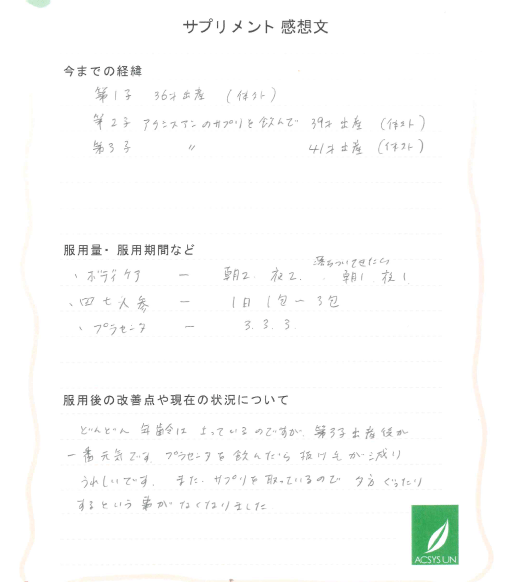 サプリメント 感想文
今までの経緯
第1子 36才出産 (体外)
第2子 アクシスアンのサプリを飲んで 39才出産 (体外)
第3子 〃 41才出産 (体外)
服用量・服用期間など
、ボディケア ー 朝2. 夜2. 落ちついてきたら 朝1. 夜1.
、田七人参 ー 1日1包〜3包
、プラセンタ ー 3.3.3.
服用後の改善点や現在の状況について
どんどん年齢は よっているのですが、第3子出産後が
一番元気です。プラセンタを飲んだら抜け毛が減り
うれしいです。また、サプリを取っているので 夕方ぐったり
するという事がなくなりました
ACSYSUN